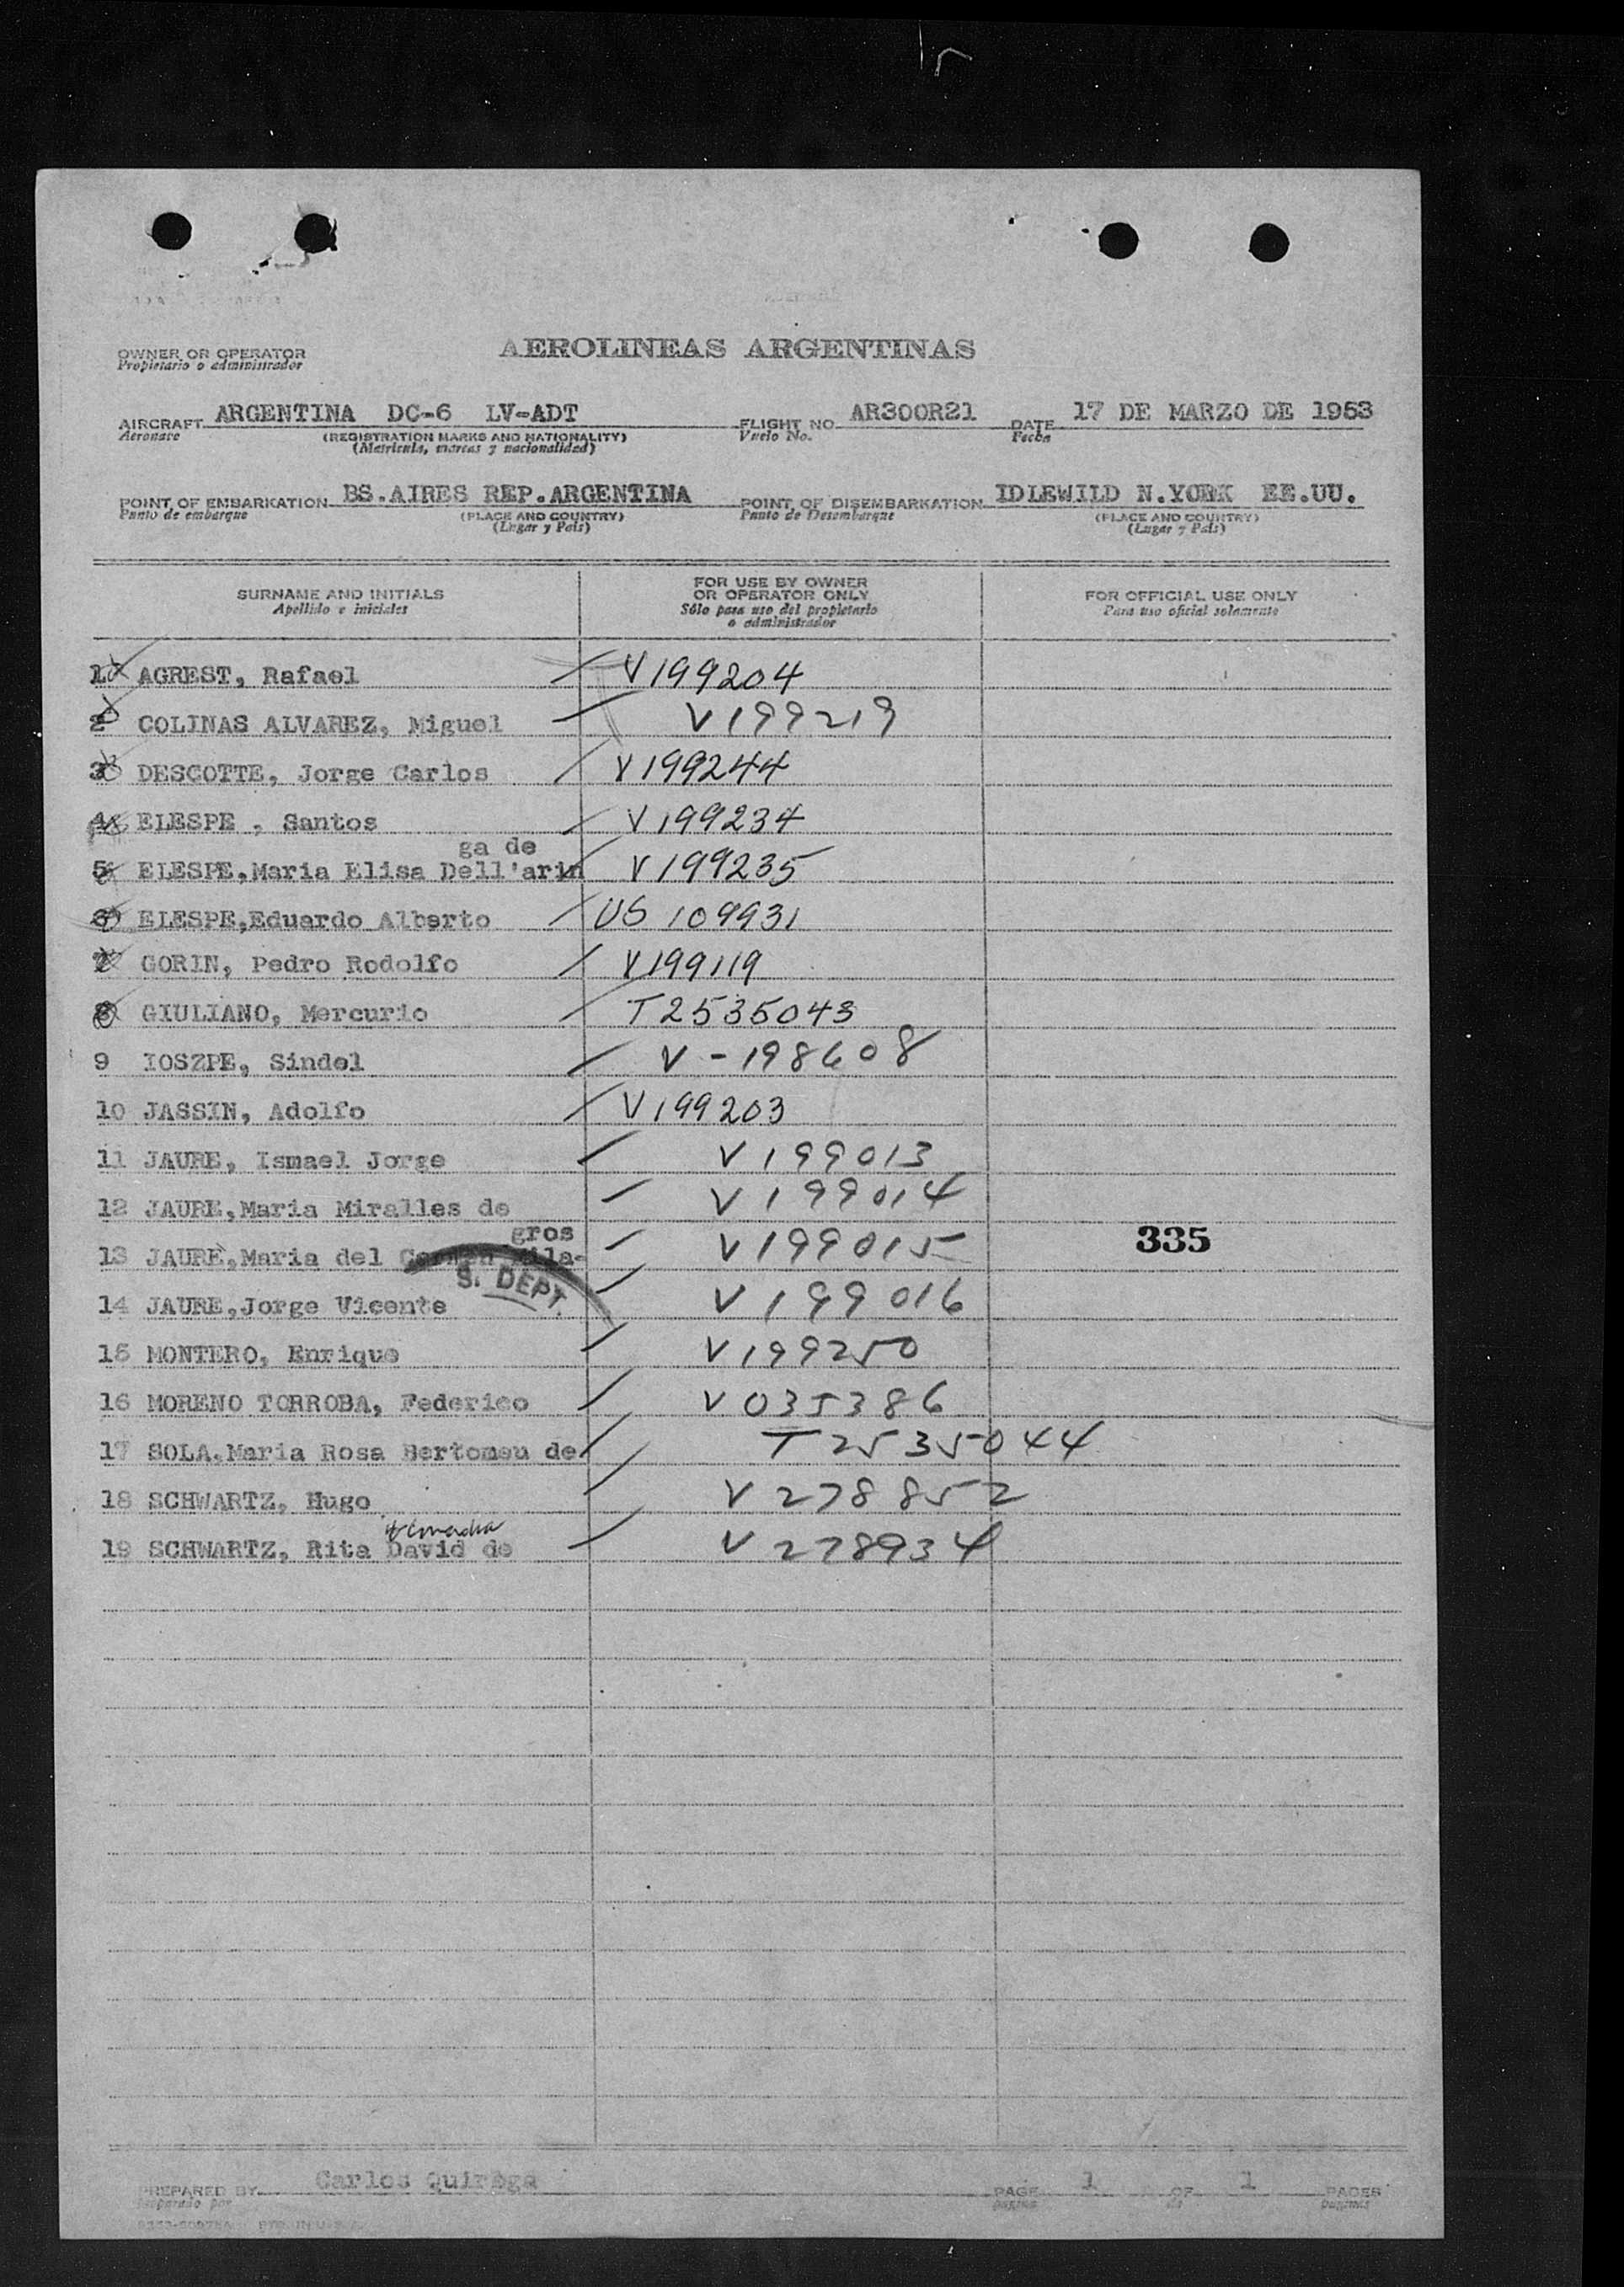 AEROLINEAS ARGENTINAS
OWNER OR OPERATOR
Propietario o administrador
AIRCRAFT ARGENTINA DC-6 LV-ADT FLIGHT NO. AR300R21 DATE 17 DE MARZO DE 1953
Aeronave (REGISTRATION MARKS AND NATIONALITY) Vuelo No. Fecha
(Matricula, marcas y nacionalidad)
POINT OF EMBARKATION BS.AIRES REP.ARGENTINA POINT OF DISEMBARKATION IDLEWILD N.YORK EE.UU.
Punto de embarque (PLACE AND COUNTRY) Punto de Desembarque (PLACE AND COUNTRY)
(Lugar y País) (Lugar y País)
SURNAME AND INITIALS
Apellido e iniciales
FOR USE BY OWNER
OR OPERATOR ONLY
Sólo para uso del propietario
o administrador
FOR OFFICIAL USE ONLY
Para uso oficial solamente
1 AGREST, Rafael V199204
2 COLINAS ALVAREZ, Miguel V199219
3 DESCOTTE, Jorge Carlos V199244
4 ELESPE , Santos V199234
ga de
5 ELESPE,Maria Elisa Dell'arin V199235
6 ELESPE,Eduardo Alberto US 109931
7 GORIN, Pedro Rodolfo V199119
8 GIULIANO, Mercurio T2535043
9 IOSZPE, Sindel V-198608
10 JASSIN, Adolfo V199203
11 JAURE, Ismael Jorge V199013
12 JAURE,Maria Miralles de V199014
gros
13 JAURE,Maria del Carmen Mila- V199015 335
S. DEPT.
14 JAURE,Jorge Vicente V199016
15 MONTERO, Enrique V199250
16 MORENO TORROBA, Federico V035386
17 SOLA,Maria Rosa Bertomeu de T2535044
18 SCHWARTZ, Hugo V278852
19 SCHWARTZ, Rita David de V278934
PREPARED BY Carlos Quiroga PAGE 1 OF 1 PAGES
Preparado por página de páginas